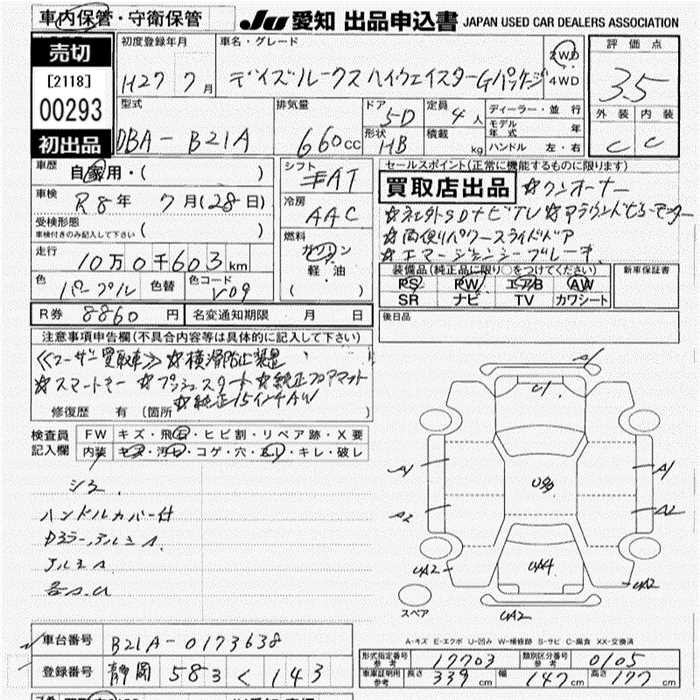 車内保管・守衛保管
JU 愛知 出品申込書 JAPAN USED CAR DEALERS ASSOCIATION
売切
[2118]
00293
初出品
初度登録年月
H27 7月
車名・グレード
デイズルークスハイウェイスターGパッケージ
2WD
4WD
評価点
3.5
外装 内装
C C
型式
DBA-B21A
排気量
660cc
ドア
5D
形状
HB
定員
4人
積載
kg
ディーラー・並行
モデル年式 年
ハンドル 左・右
車歴
自家用・( )
車検
R8年 7月(28日)
受検形態
車検付きのみ記入して下さい ( )
走行
10万0千603km
色
パープル
色替
色コード
V09
シフト
AT
冷房
AAC
燃料
ガソリン
軽油
( )
セールスポイント(正常に機能するものに限ります)
買取店出品 ☆ワンオーナー
☆ネオ外SDナビTV ☆アラウンドビューモニター
☆両側パワースライドドア
☆エマージェンシーブレーキ
装備品(純正品に限り○をつけてください)
PS PW エアB AW
SR ナビ TV カワシート
新車保証書
後日品
R券 8860円
名変通知期限 月 日
注意事項申告欄(不具合内容等は具体的に記入して下さい)
≪ユーザー買取車≫ ☆横滑防止装置
☆スマートキー ☆プッシュスタート ☆純正フロアマット
☆純正15インチAW
修復歴 有 (箇所 )
検査員記入欄
FW キズ・飛石・ヒビ割・リペア跡・X要
内装 キズ・汚れ・コゲ・穴・キレ・破レ
シミ
ハンドルカバー付
ドアミラー
アルミA
各a.u
A1
U3
A1
A2
A2
UA2
UA4
UA2
UA2
スペア
A-キズ E-エクボ U-凹み W-補修跡 S-サビ C-腐食 XX-交換済
車台番号 B21A-0173638
登録番号 静岡 583 く 143
形式指定番号 参考 17703
類別区分番号 参考 0105
車庫証明用参考 長さ 339cm 幅 147cm 高さ 177cm